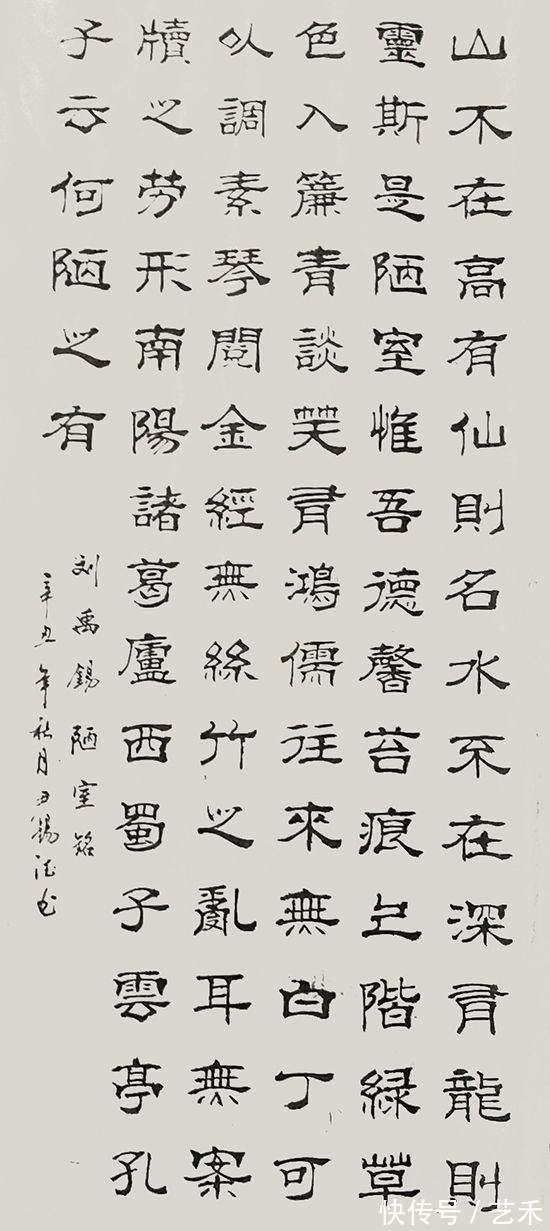 山不在高有仙則名水不在深有龍則
靈斯是陋室惟吾德馨苔痕上階緑草
色入簾青談笑有鴻儒往來無白丁可
以調素琴閱金經無絲竹之亂耳無案
牘之勞形南陽諸葛廬西蜀子雲亭孔
子云何陋之有
刘禹錫陋室銘
辛丑年秋月尹錫书
快传号／艺禾